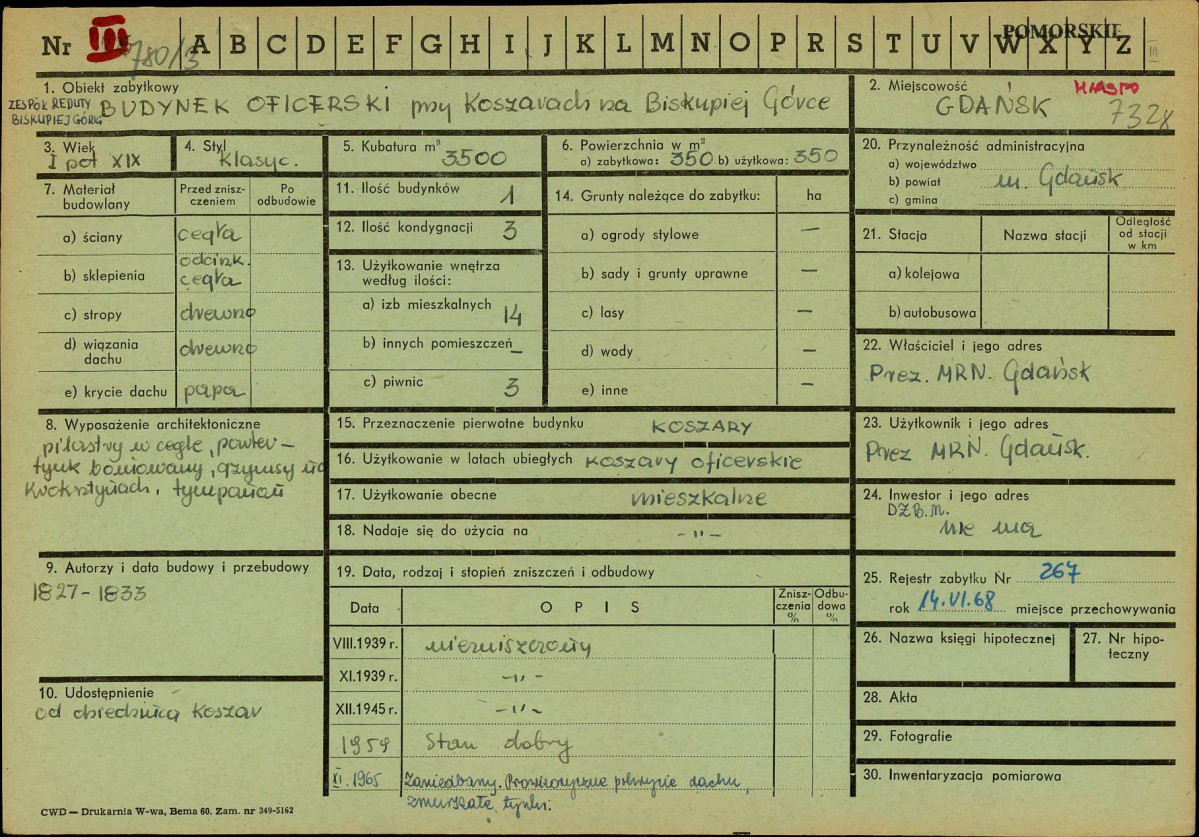 Nr III 780/3 A B C D E F G H I J K L M N O P R S T U V W X Y Z POMORSKIE
III
1. Obiekt zabytkowy
ZESPÓŁ REDUTY
BISKUPIEJ GÓRE
BUDYNEK OFICERSKI przy Koszarach na Biskupiej Górce
2. Miejscowość MIASTO
GDAŃSK 732x
3. Wiek
I poł XIX
4. Styl
klasyc.
5. Kubatura m³ 3500
6. Powierzchnia w m²
a) zabytkowa: 350 b) użytkowa: 350
7. Materiał budowlany
Przed znisz-
czeniem
Po
odbudowie
a) ściany cegła
b) sklepienia odcink.
cegła
c) stropy drewno
d) wiązania
dachu drewno
e) krycie dachu papa
8. Wyposażenie architektoniczne
pilastry w cegle, parter –
tynk boniowany, gzymsy na
kroksztynach, tympanan
9. Autorzy i data budowy i przebudowy
1827-1833
10. Udostępnienie
od dziedzińca koszar
11. Ilość budynków 1
12. Ilość kondygnacji 3
13. Użytkowanie wnętrza
według ilości:
a) izb mieszkalnych 14
b) innych pomieszczeń –
c) piwnic 3
14. Grunty należące do zabytku: ha
a) ogrody stylowe —
b) sady i grunty uprawne —
c) lasy —
d) wody —
e) inne —
15. Przeznaczenie pierwotne budynku KOSZARY
16. Użytkowanie w latach ubiegłych koszary oficerskie
17. Użytkowanie obecne mieszkalne
18. Nadaje się do użycia na -"-
19. Data, rodzaj i stopień zniszczeń i odbudowy
Data
O P I S
Znisz-
czenia
%
Odbu-
dowa
%
VIII.1939 r. niezniszczony
XI.1939 r. -"-
XII.1945 r. -"-
1959 Stan dobry
XI.1965 Zaniedbany. Prowizoryczne pokrycie dachu,
zmurszałe tynki.
20. Przynależność administracyjna
a) województwo
b) powiat m. Gdańsk
c) gmina
21. Stacja
Nazwa stacji
Odległość
od stacji
w km
a) kolejowa
b) autobusowa
22. Właściciel i jego adres
Prez. MRN. Gdańsk
23. Użytkownik i jego adres
Prez MRN. Gdańsk.
24. Inwestor i jego adres
DZBM.
nie ma
25. Rejestr zabytku Nr 267
rok 14.VI.68 miejsce przechowywania
26. Nazwa księgi hipotecznej
27. Nr hipo-
teczny
28. Akta
29. Fotografie
30. Inwentaryzacja pomiarowa
CWD — Drukarnia W-wa, Bema 60. Zam. nr 349-5162